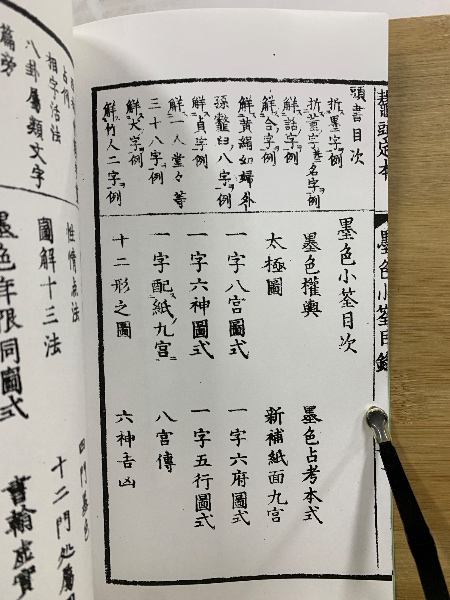 鼇頭定本
墨色小筌目錄
頭書目次
折墨字例
折藁字甚名字例
觧話字例
觧合字例
觧黄絹如婦外
孫虀臼八字例
觧貞字例
觧一人堂々等
三十八字例
觧大字例
觧竹人二字例
墨色小筌目次
墨色權輿
墨色占考本式
太極圖
新補紙面九宮
一字八宮圖式
一字六府圖式
一字六神圖式
一字五行圖式
一字配紙九宮
八宮傳
十二形之圖
六神吉凶
占例
相字活法
八卦屬類文字
篇旁
性情点法
四門墨色
圖解十三法
十二門処屬
墨色年限同圖式
書翰虚實